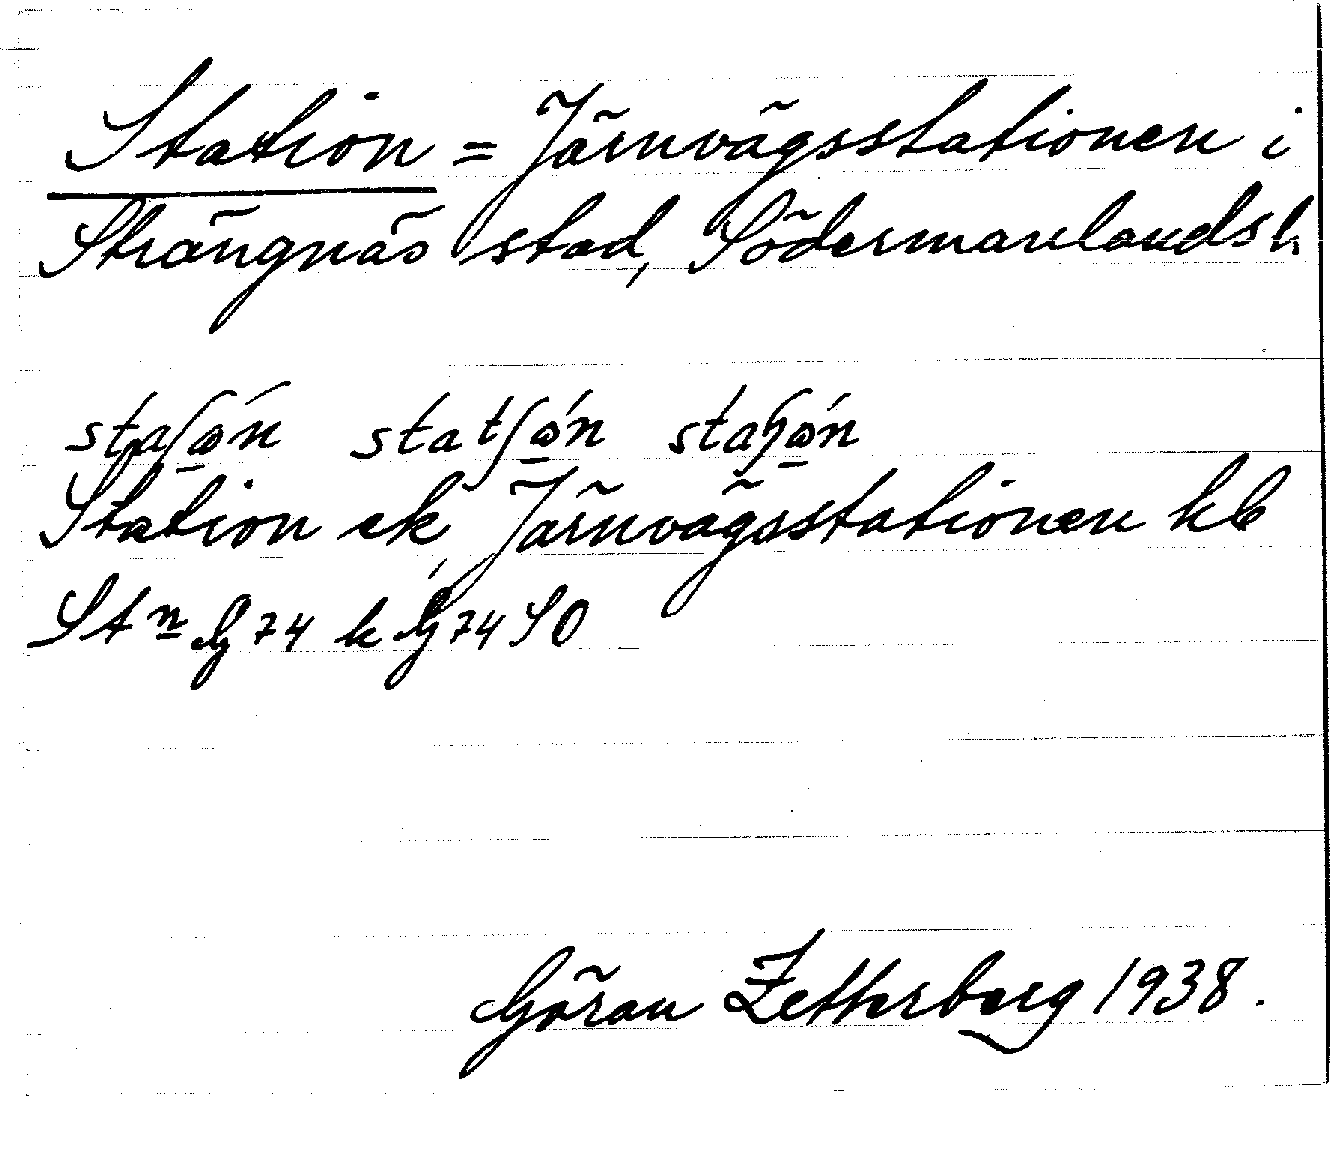 Station = Järnvägsstationen i
Strängnäs stad, Södermanlands l.
staʃώn statʃώn
Station ek, Järnvägsstationen kb
Stn G 74 k G 74 SO
Göran Zetterberg 1938.